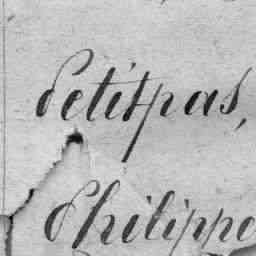 Petitpas,
Philippe